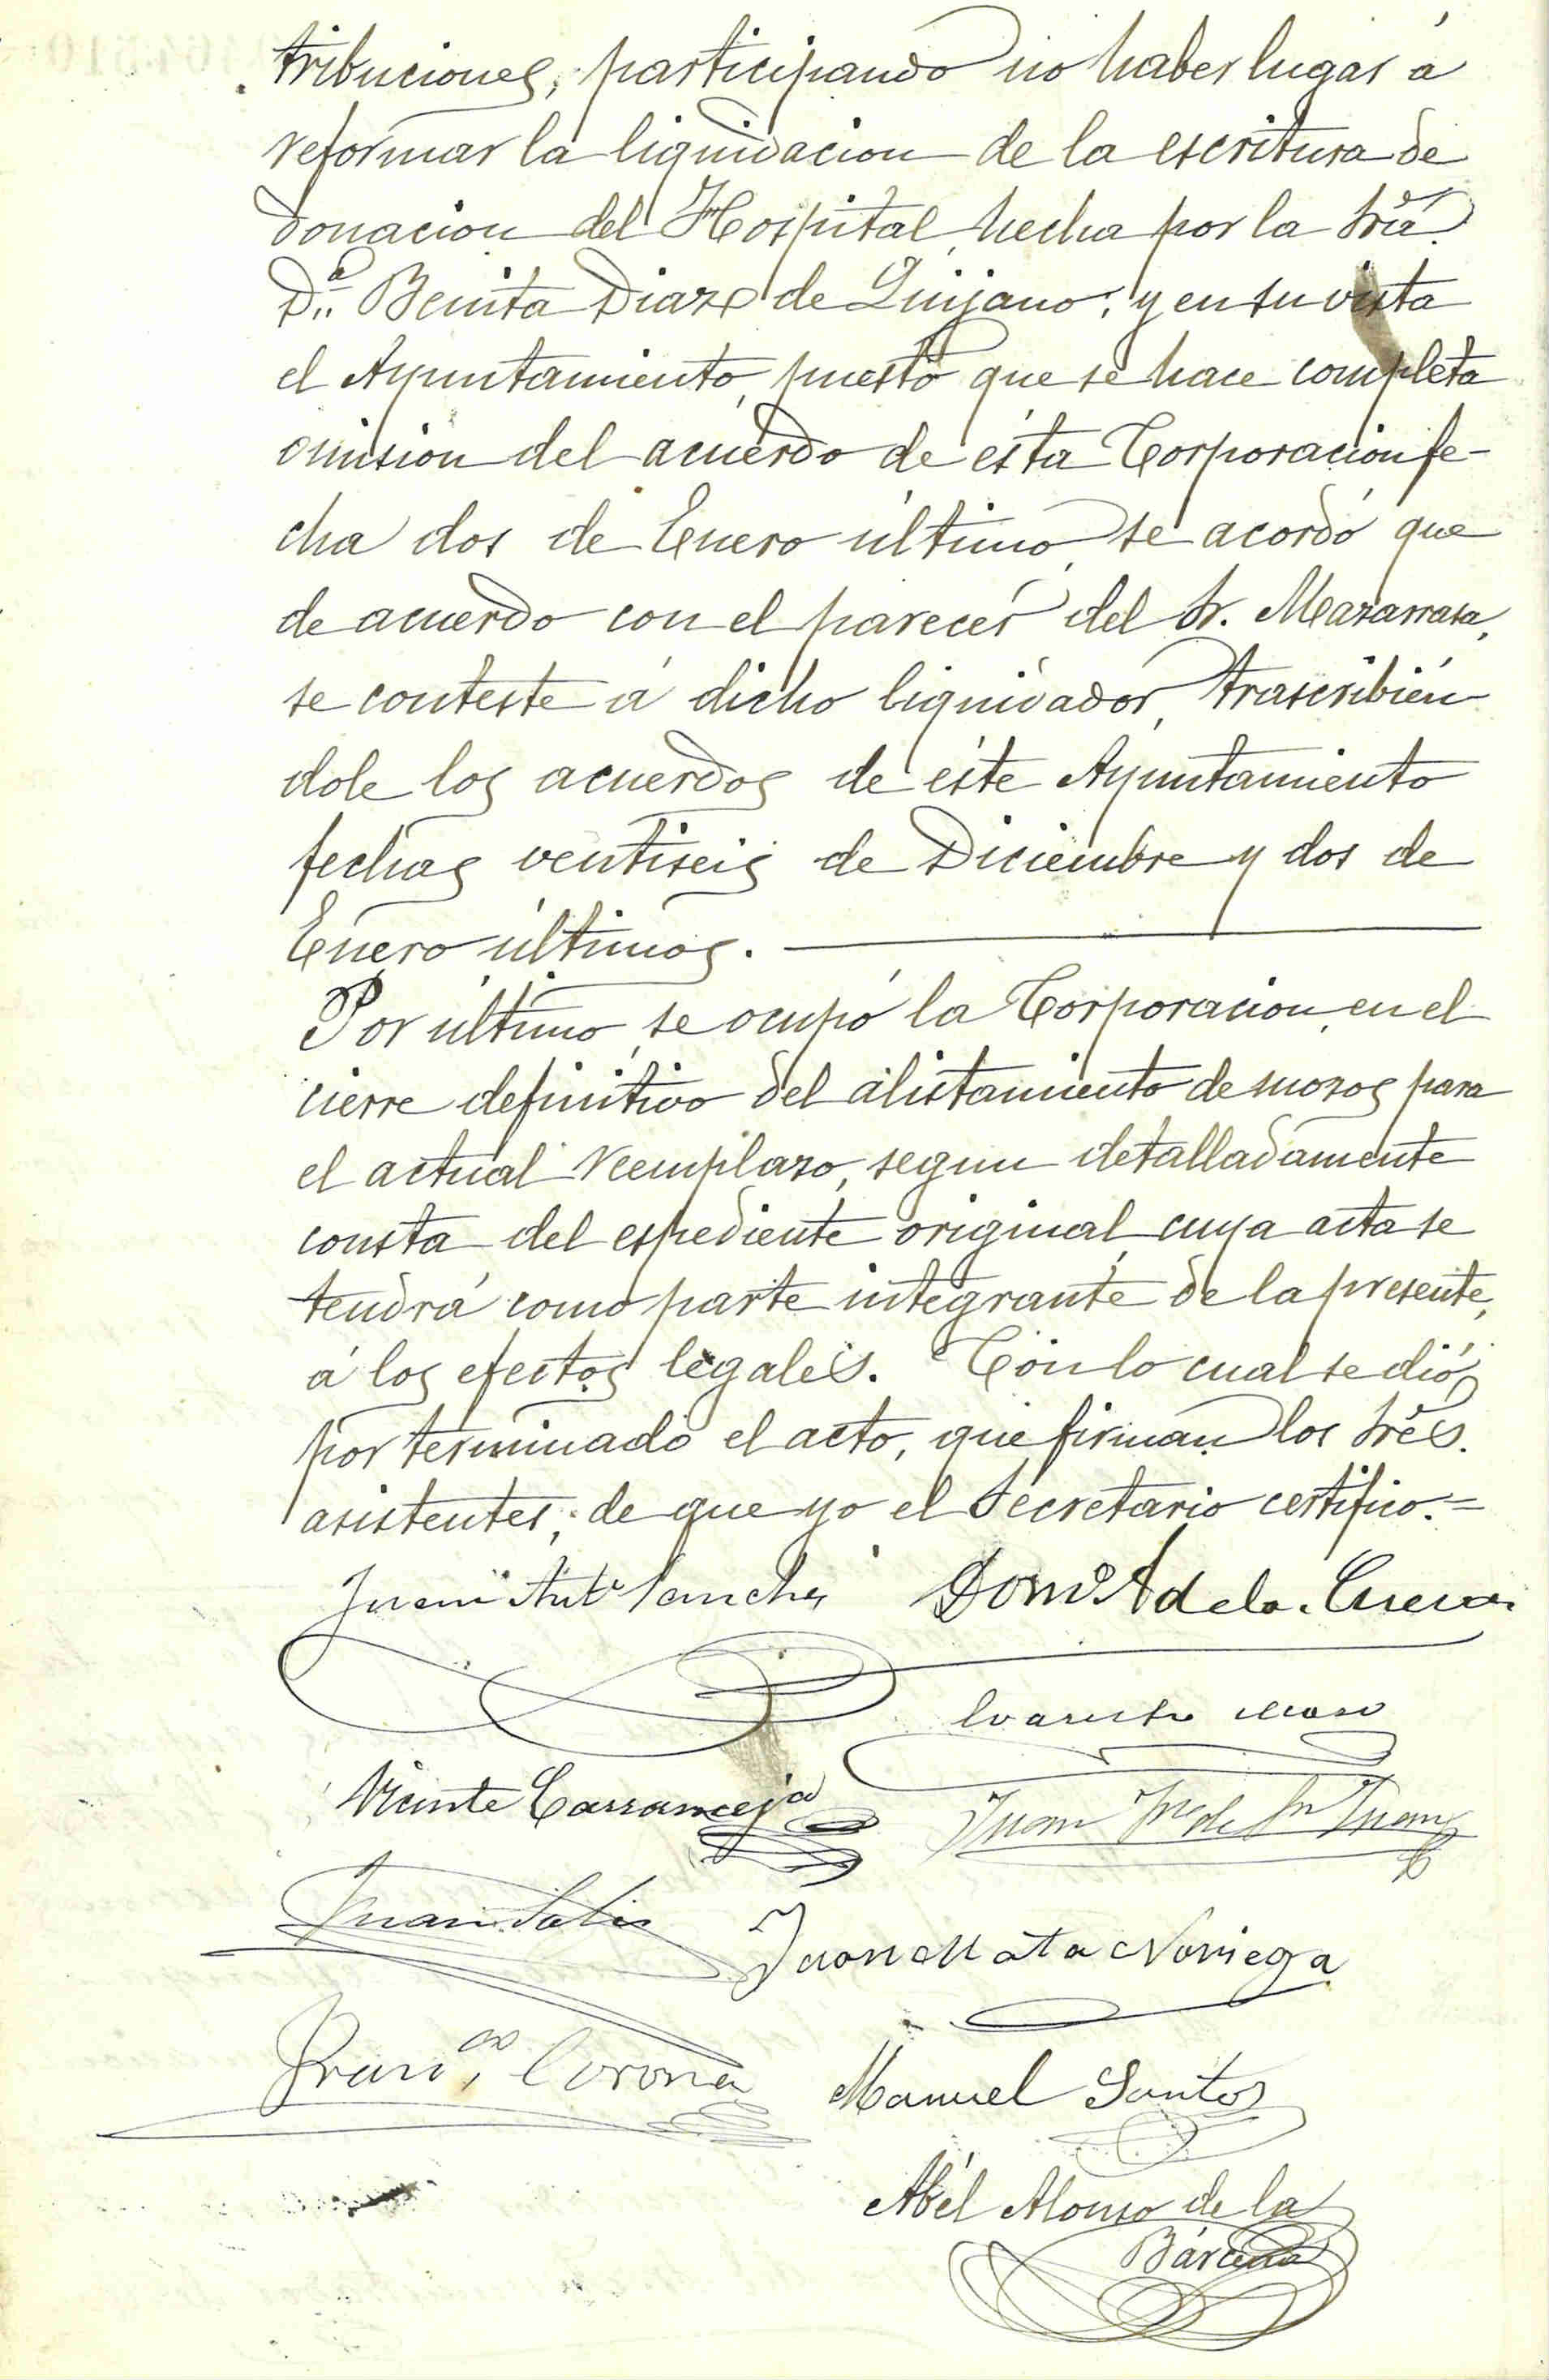 tribuciones, participando no haber lugar á
reformar la liquidacion de la escritura de
donacion del Hospital, hecha por la Srã.
D.ª Benita Diaz de Quijano; y en su vista
el Ayuntamiento, puesto que se hace completa
omision del acuerdo de ésta Corporacion fe-
cha dos de Enero último, se acordó que
de acuerdo con el parecer del Sr. Mazarrasa,
se conteste á dicho liquidador, trascribién
dole los acuerdos de éste Ayuntamiento
fechas ventiseis de Diciembre y dos de
Enero últimos.
Por último, se ocupó la Corporacion, en el
cierre definitivo del alistamiento de mozos para
el actual reemplazo, segun detalladamente
consta del espediente original, cuya acta se
tendrá como parte integrante de la presente,
á los efectos legales. Con lo cual se dió
por terminado el acto, que firman los Srẽs.
asistentes, de que yo el Secretario certifico.=
Juan Antº Sanchez Domº A de la Cueva
Evaristo
Vicente Carranceja Juan de Sn Juan
Juan Solis Juan Mata Noriega
Franco, Corona
Manuel Santos
Abél Alonso de la
Bárcena